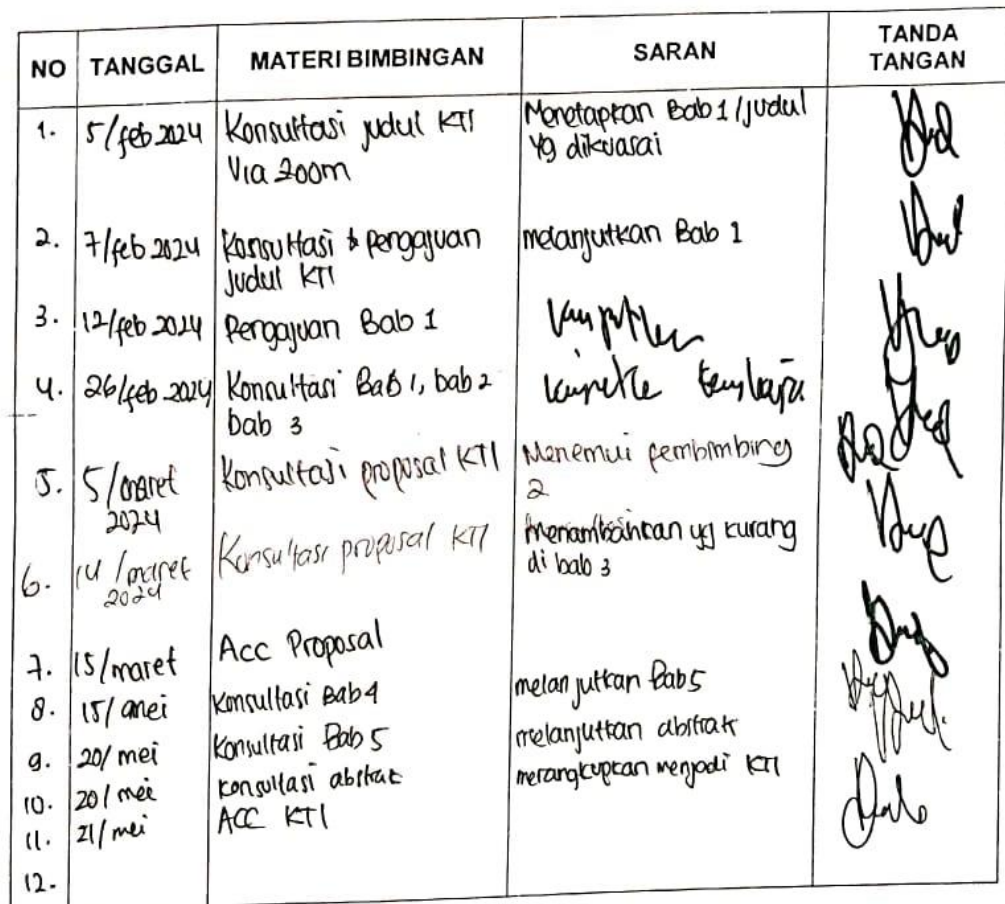 NO TANGGAL MATERI BIMBINGAN SARAN TANDA TANGAN
1. 5/feb 2024 Konsultasi judul KTI Menetapkan Bab 1/judul
Via Zoom yg dikuasai
2. 7/feb 2024 Konsultasi & pengajuan melanjutkan Bab 1
judul KTI
3. 12/feb 2024 Pengajuan Bab 1
4. 26/feb 2024 Konsultasi Bab 1, bab 2
bab 3
5. 5/maret Konsultasi proposal KTI Menemui pembimbing
2024 2
6. 14/maret Konsultasi proposal KTI Menambahkan yg kurang
2024 di bab 3
7. 15/maret Acc Proposal
8. 15/mei Konsultasi Bab 4 melanjutkan Bab 5
9. 20/mei Konsultasi Bab 5 melanjutkan abstrak
10. 20/mei konsultasi abstrak merangkupkan menjadi KTI
11. 21/mei ACC KTI
12.